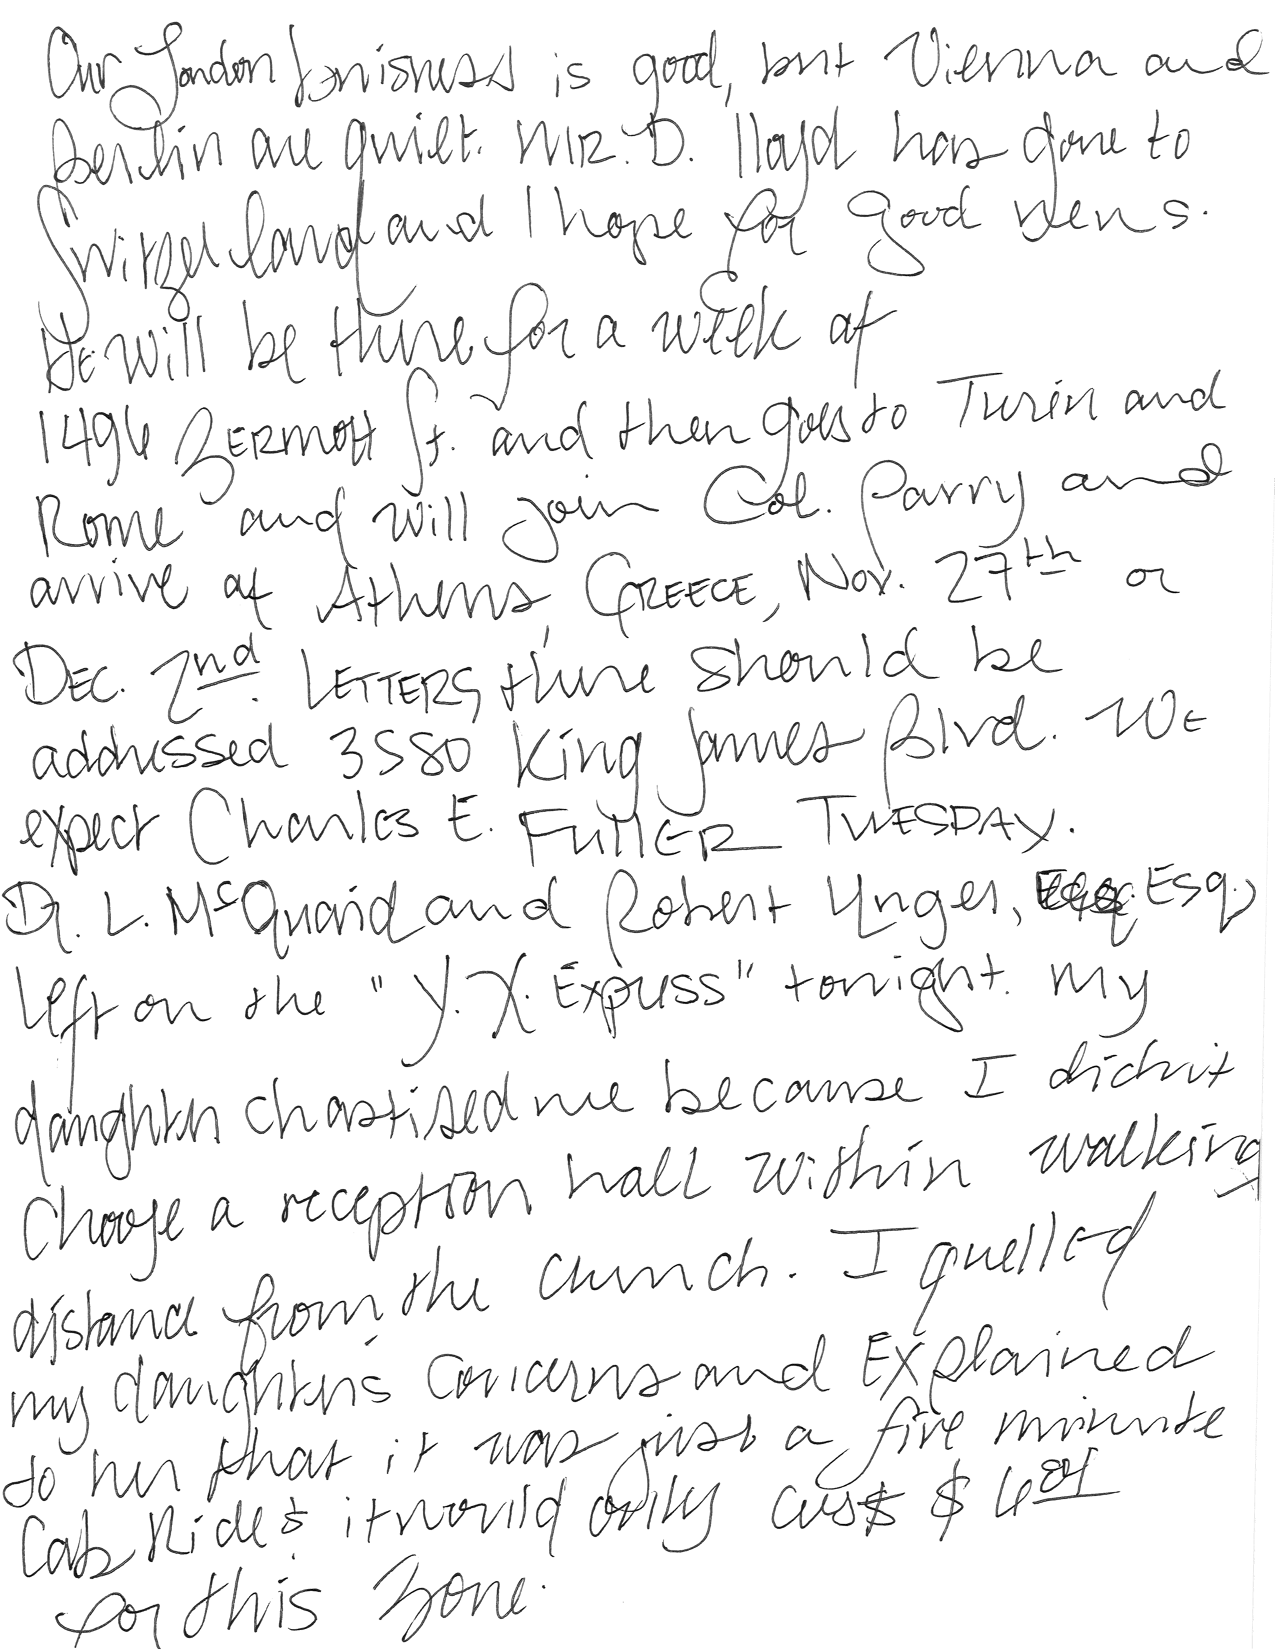 Our London business is good, but Vienna and
Berlin are quiet. MR. D. lloyd has gone to
Switzerland and I hope for good news.
He will be there for a week at
1496 ZERMOtt St. and then goes to Turin and
Rome and will join Col. Parry and
arrive at Athens, GREECE, Nov. 27th or
DEC. 2nd. LETTERS there should be
addressed 3580 King James Blvd. WE
expect Charles E. FUllER TUESDAY.
DR. L. McQuaid and Robert Unger, Esq.,
left on the "Y.X. Express" tonight. My
daughter chastised me because I didn't
choose a reception hall within walking
distance from the church. I quelled
my daughter's concerns and Explained
to her that it was just a five minute
Cab Ride & it would only cost $ 6 84
for this zone.